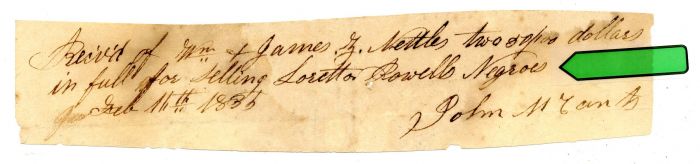 Receiv'd of Wm & James Z. Nettles two dollars
in full for selling Loretto Rowell Negroes
Feb 11th 1835
John McCants